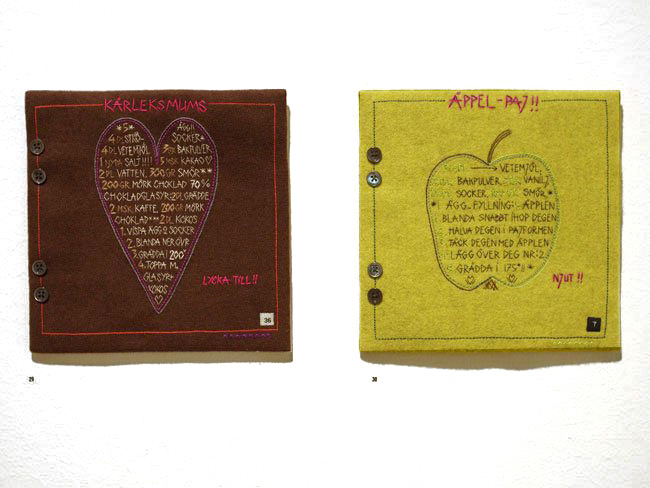 KÄRLEKSMUMS
*5* ÄGG!!
4 DL STRÖ- SOCKER*
4 DL VETEMJÖL 3 TSK BAKPULVER
1 NYPA SALT!!!! 5 MSK KAKAO♡
2 DL VATTEN, 300 GR SMÖR**
200 GR MÖRK CHOKLAD 70%
CHOKLADGLASYR: 2 DL GRÄDDE
2 MSK KAFFE, 200 GR MÖRK
CHOKLAD*** 2 DL KOKOS
1. VISPA ÄGG & SOCKER
2. BLANDA NER ÖVR
3. GRÄDDA I 200°
4. TOPPA M.
GLASYR+
KOKOS
LYCKA TILL!!
36
29
ÄPPEL-PAJ!!
VETEMJÖL,
BAKPULVER, VANILJ
SOCKER, SMÖR
*1 ÄGG. FYLLNING: ÄPPLEN
BLANDA SNABBT IHOP DEGEN
HALVA DEGEN I PAJFORMEN
TÄCK DEGEN MED ÄPPLEN
LÄGG ÖVER DEG NR: 2
GRÄDDA I 175°
NJUT !!
7
30